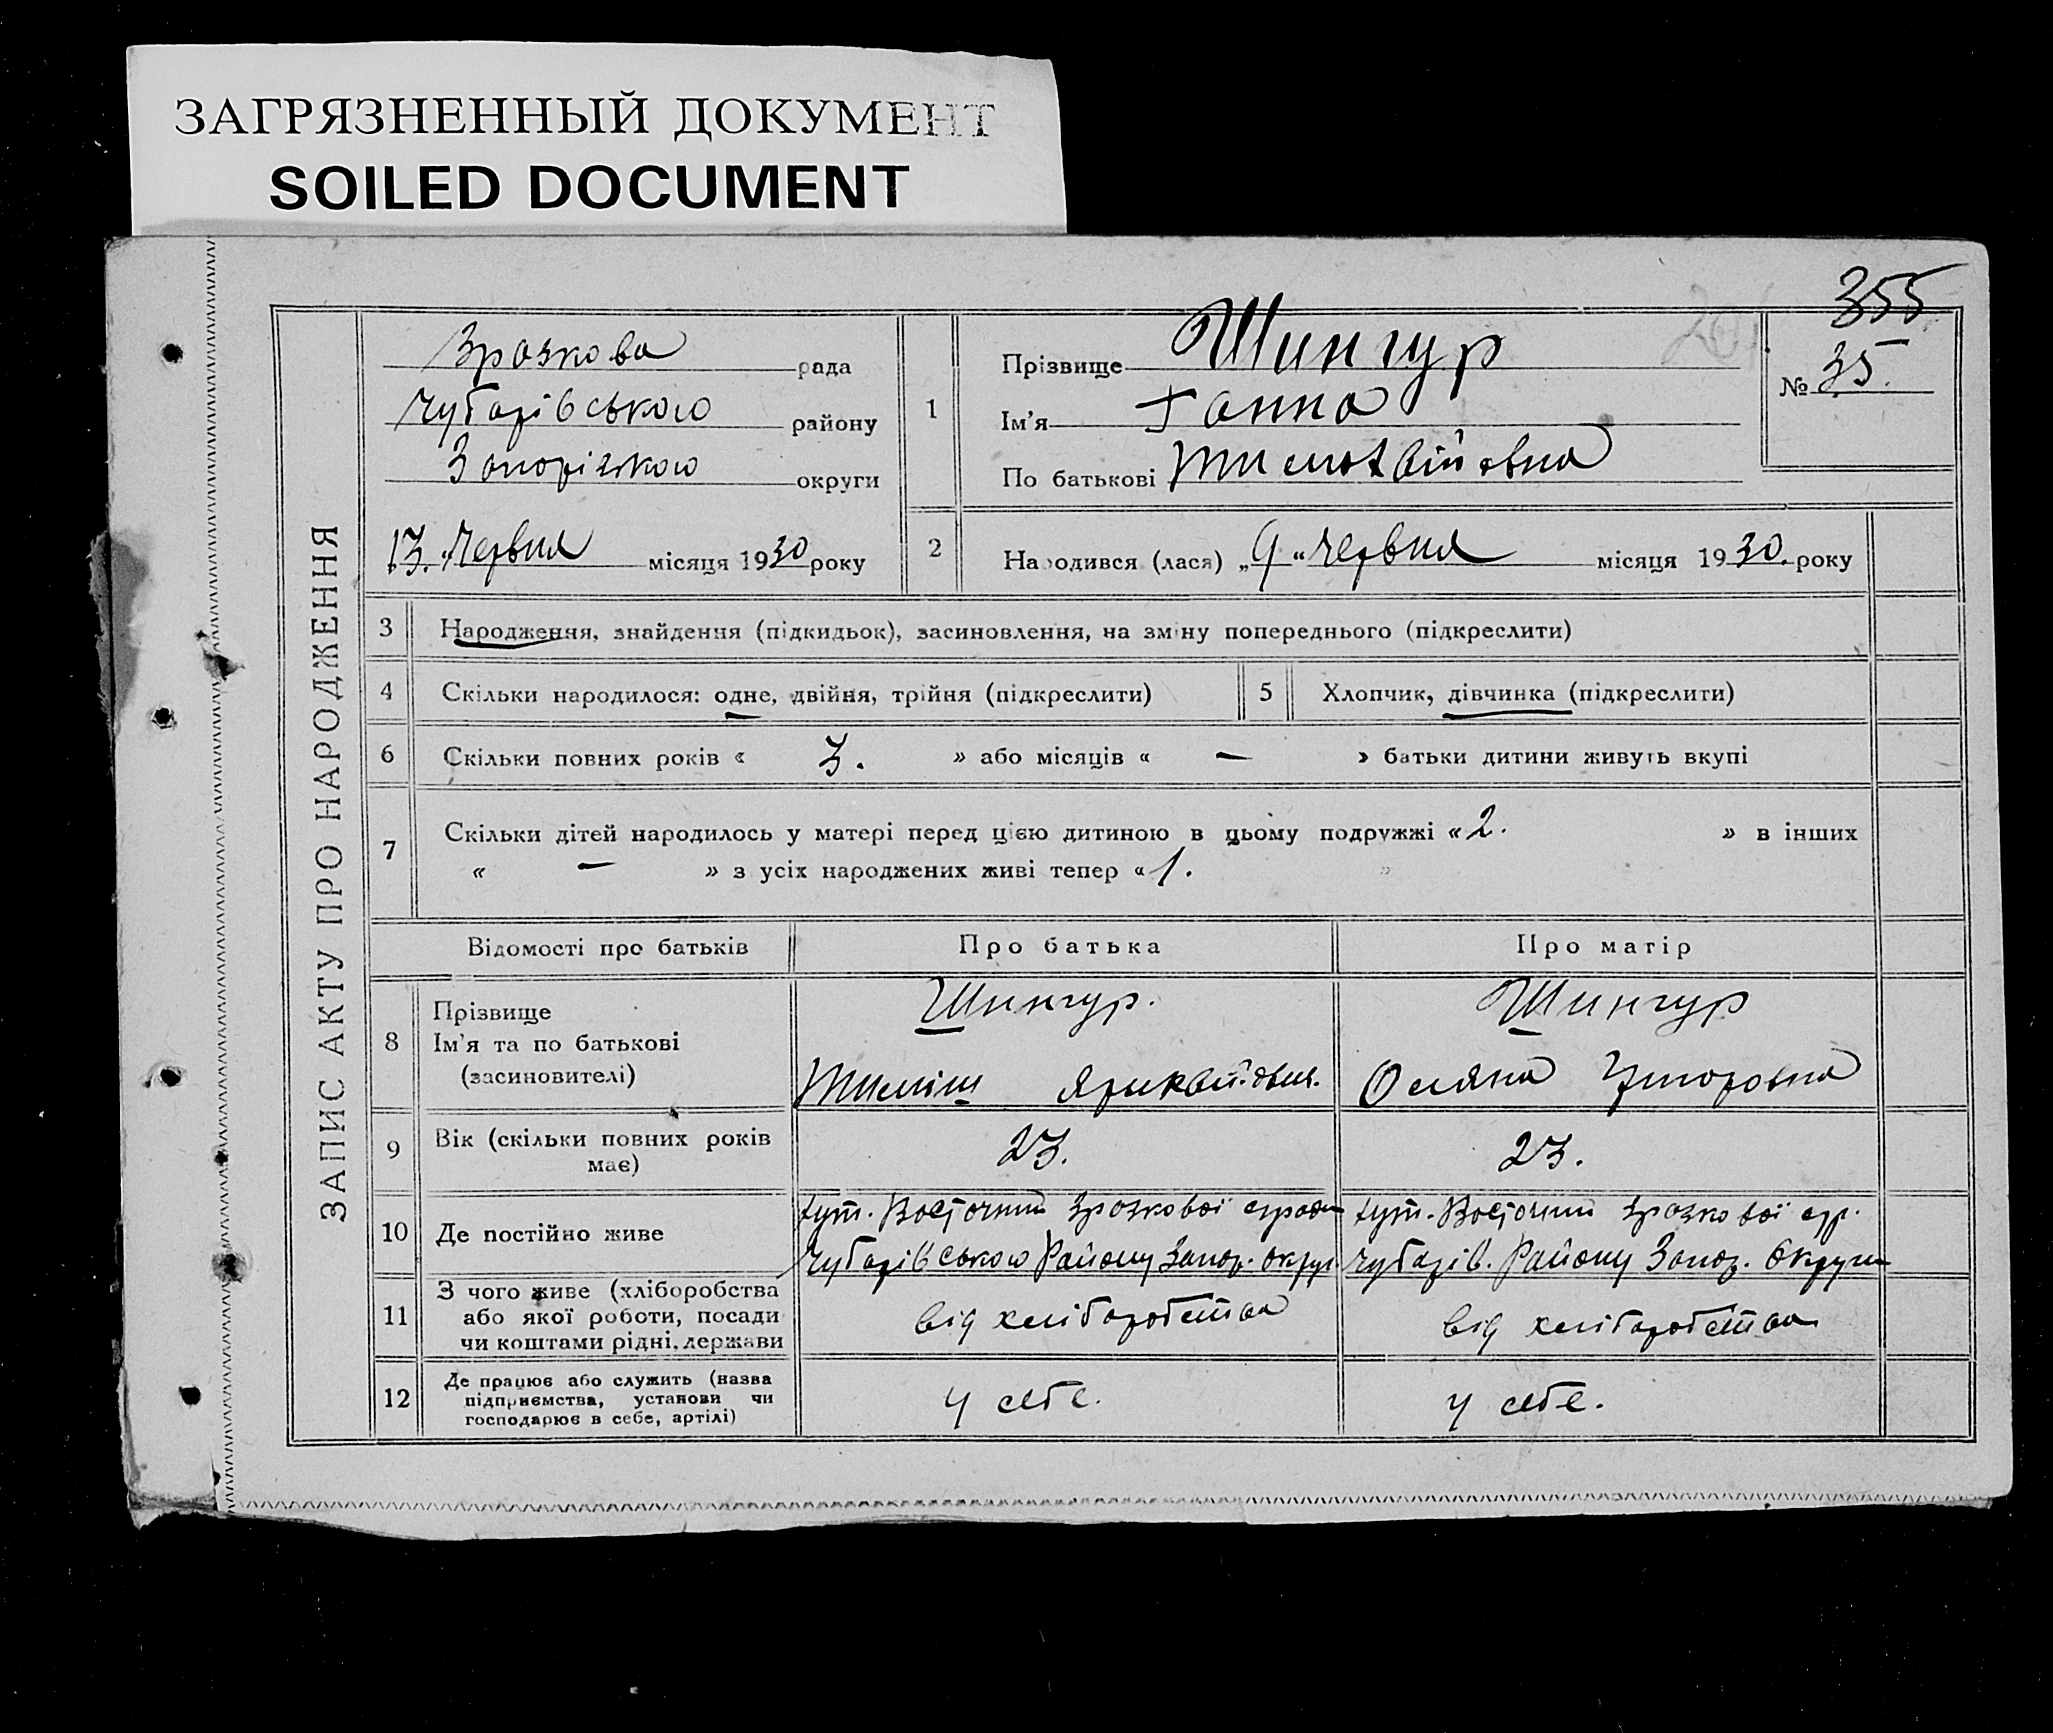 ЗАГРЯЗНЕННЫЙ ДОКУМЕНТ
SOILED DOCUMENT
355
ЗАПИС АКТУ ПРО НАРОДЖЕННЯ
Зразкова рада
Чубарівського району
Запорізького округи
13. Червня місяця 1930 року
1
Прізвище Шингур
Ім'я Ганна
По батькові
№ 35.
2
Народився (лася) „9“ Червня місяця 1930. року
3 Народження, знайдення (підкидьок), засиновлення, на зміну попереднього (підкреслити)
4 Скільки народилося: одне, двійня, трійня (підкреслити)
5 Хлопчик, дівчинка (підкреслити)
6 Скільки повних років « 3. » або місяців « — » батьки дитини живуть вкупі
7 Скільки дітей народилось у матері перед цією дитиною в цьому подружжі «2. » в інших
« — » з усіх народжених живі тепер «1. »
Відомості про батьків Про батька Про матір
8
Прізвище
Ім'я та по батькові
(засиновителі)
Шингур.
Шингур
9
Вік (скільки повних років
має)
23.
23.
10 Де постійно живе
хут. Восточний Зразкової сradi
Чубарівського Району Запор. округ.
хут. Восточний Зразкової с/р.
Чубарів. Району Запор. Округи
11
З чого живе (хліборобства
або якої роботи, посади
чи коштами рідні, держави
від хліборобства
від хліборобства
12
Де працює або служить (назва
підприємства, установи чи
господарює в себе, артілі)
у себе.
у себе.